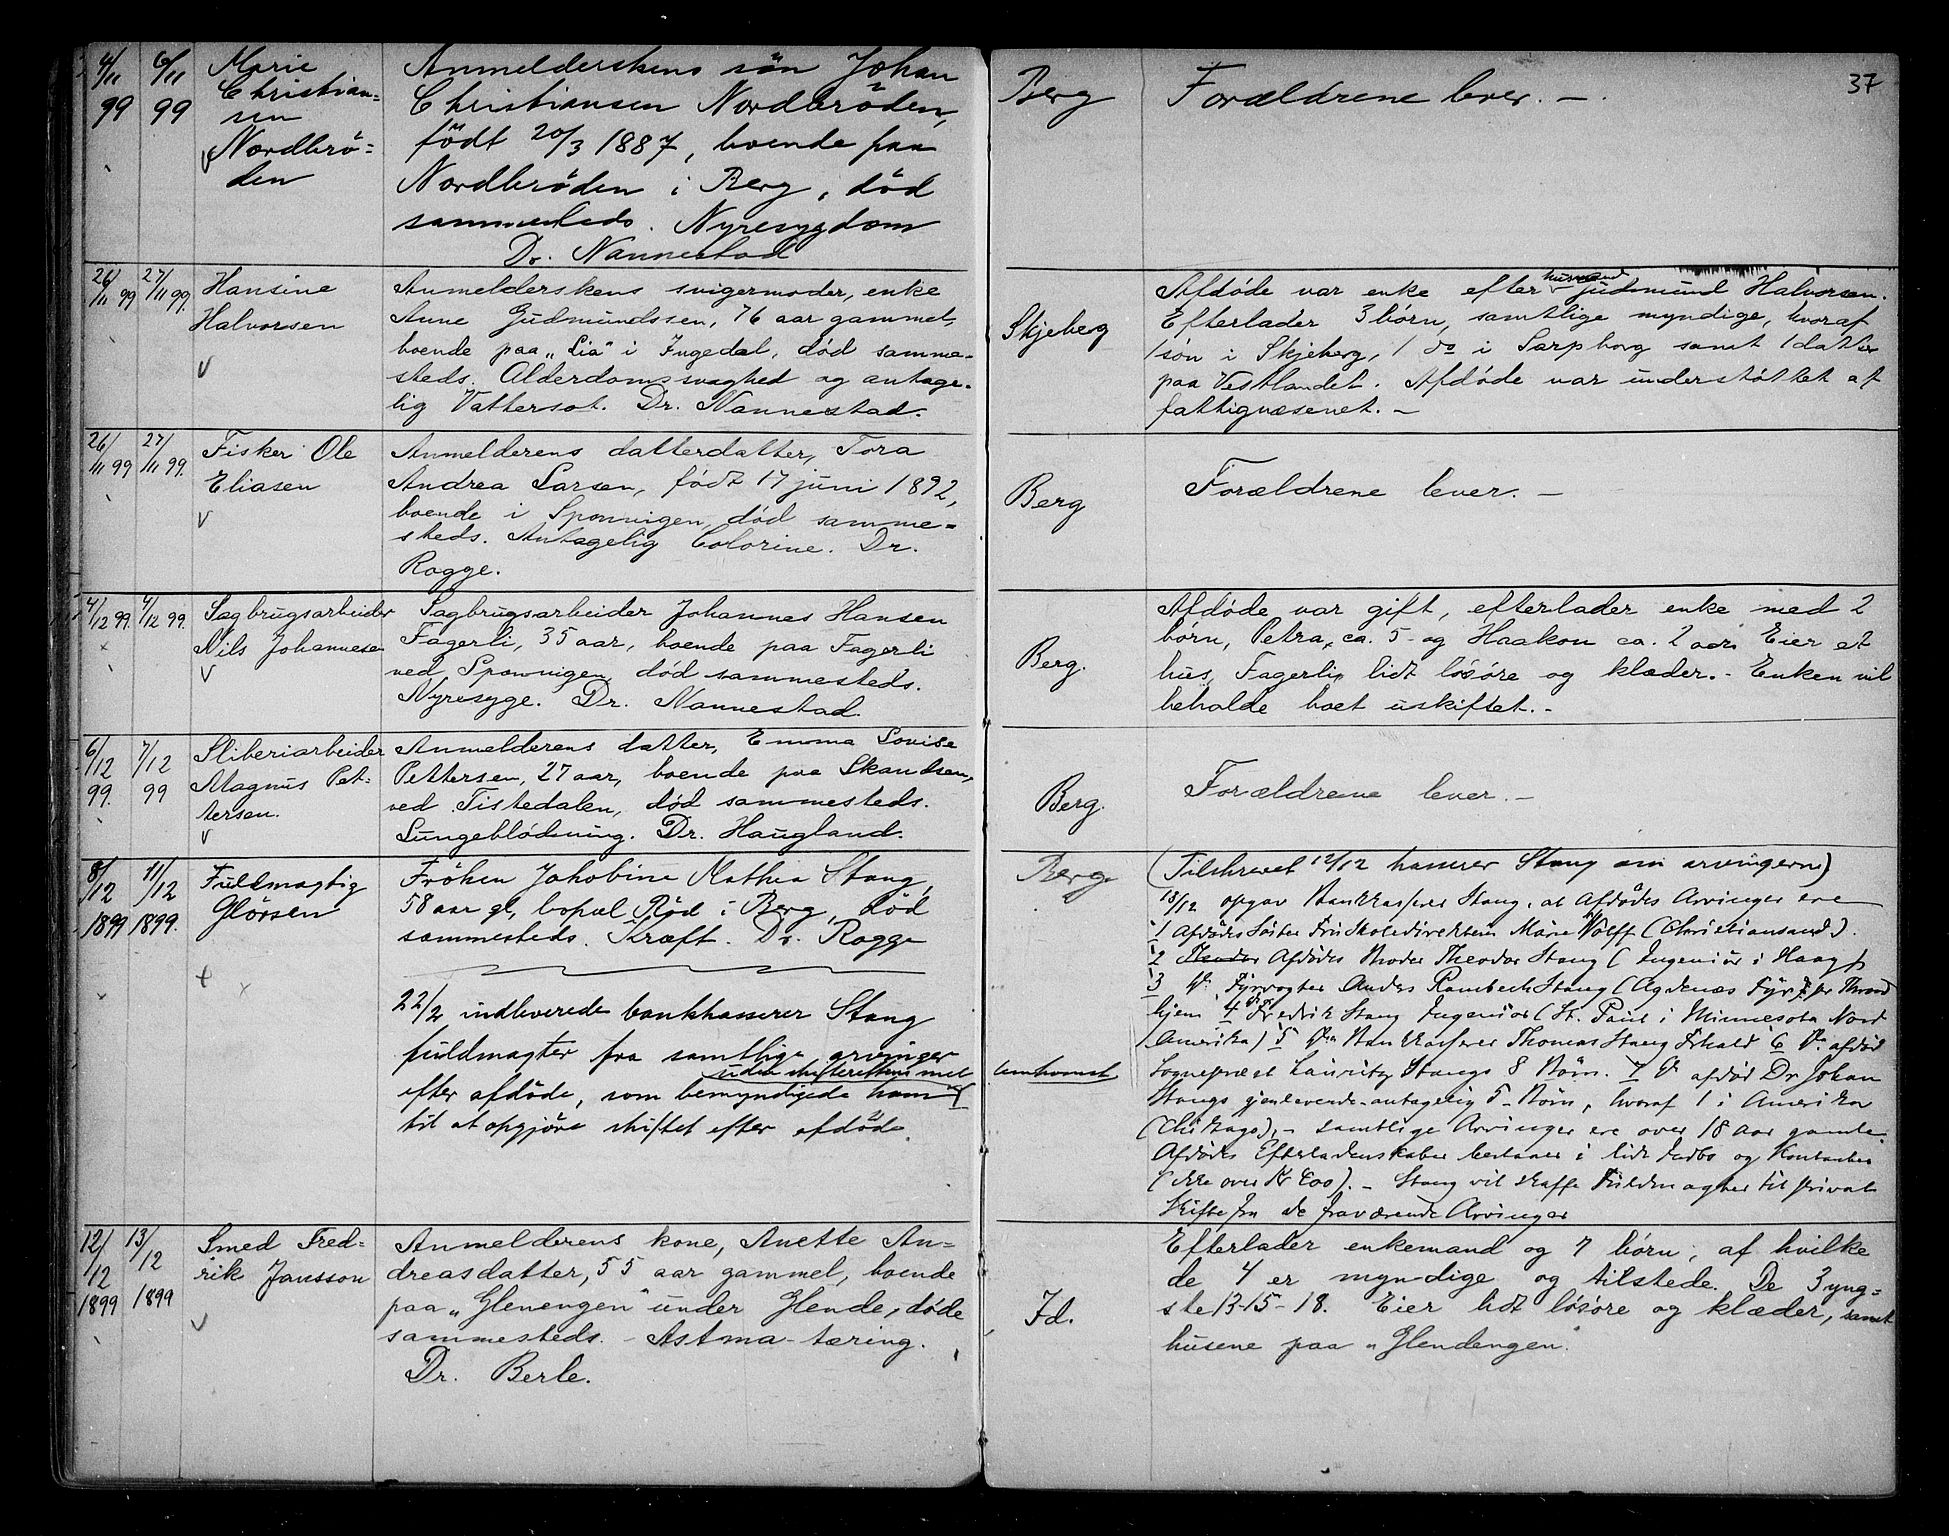 37
4/11 99
6/11 99
Marie
Christian=
sen
Nordbrö=
den
Anmelderskens sön Johan
Christiansen Nordbröden,
födt 20/3 1887, boende paa
Nordbröden i Berg, död
sammesteds. Nyresygdom
Dr. Nannestad
Berg
Forældrene lever. —.
26/11 99
27/11 99.
Hansine
Halvorsen
Anmelderskens svigermoder, enke
Anne Gudmundssen, 76 aar gammel,
boende paa „Lia" i Ingedal, død samme-
steds. Alderdomssvaghed og antage-
lig Vattersot. Dr. Nannestad.
Skjeberg
husmand
Afdøde var enke efter Gudmund Halvorsen.
Efterlader 3 børn, samtlige myndige, hvoraf
1 søn i Skjeberg, 1 do i Sarpborg samt 1 datter
paa Vestlandet. Afdøde var understøttet af
fattigvæsenet. —
26/11 99
27/11 99.
Fisker Ole
Eliasen
Anmelderens datterdatter, Tora
Andrea Larsen, født 17 juni 1892,
boende i Sponvigen, død samme=
steds. Antagelig Colorine. Dr.
Rogge.
Berg
Forældrene lever. —
4/12 99.
4/12 99.
Sagbrugsarbeider
Nils Johannesen
Sagbrugsarbeider Johannes Hansen
Fagerli, 35 aar, boende paa Fagerli
ved Sponvigen, død sammesteds.
Nyresyge. Dr. Nannestad.
Berg.
Afdøde var gift, efterlader enke med 2
børn, Petra, ca. 5- og Haakon ca. 2 aar. Eier et
hus, Fagerli, lidt løsøre og klæder. - Enken vil
beholde boet uskiftet. -
6/12 99.
7/12 99
Sliberiarbeider
Magnus Pet-
tersen.
Anmelderens datter, Emma Lovise
Pettersen, 27 aar, boende paa Skandsen,
ved Tistedalen, død sammesteds.
Lungeblödning. Dr. Haugland.
Berg.
Forældrene lever. —
8/12 1899
11/12 1899.
Fuldmægtig
Glörsen
Fröken Jakobine Mathea Stang,
58 aar gl, bopæl Röd i Berg, död
sammesteds. Kræft. Dr. Rogge
22/2 indleverede bankkasserer Stang
fuldmagter fra samtlige arvinger
uden skifterettens mel
efter afdöde, som bemyndigede ham
til at opgjöre skiftet efter afdöde.
Berg.
(Tilskrevet 12/12 kasserer Stang om arvingerne)
18/12 opgav Bankkasserer Stang, at Afdødes Arvinger ere
1 Afdødes Søster Fru Skoledirektør Marie Wolff (Christiansand).
2 Theodor Afdødes Broder Theodor Stang (Ingeniør i Haag)
3 Do Fyrvogter Anders Rambech Stang (Agdenæs Fyr pr Thrond
hjem 4 Do Fredrik Stang Ingeniør (St. Paul i Minnesota Nord
Amerika) 5 Do Bankkasserer Thomas Stang Frhald 6 Do afdød
Sognepræst Lauritz Stangs 8 Børn. 7 Do afdød Dr Johan
Stangs gjenlevende antagelig 5 Børn, hvoraf 1 i Amerika
(Chikago), - samtlige Arvinger ere over 18 aar gamle.
Afdødes Efterladenskaber bestaar i lidt Indbo og Kontanter
(ikke over Kr 400). - Stang vil skaffe Fuldmagter til privat
Skifte fra de fraværende Arvinger
12/12 1899
13/12 1899
Smed Fred-
rik Jansson
Anmelderens kone, Anette An=
dreasdatter, 55 aar gammel, boende
paa „Glenengen" under Glende, døde
sammesteds. - Astma-tæring.
Dr. Berle.
Id.
Efterlader enkemand og 7 børn, af hvilke
de 4 er myndige og tilstede. De 3 yng=
ste 13-15-18. Eier lidt løsøre og klæder, samt
husene paa „Glendengen".